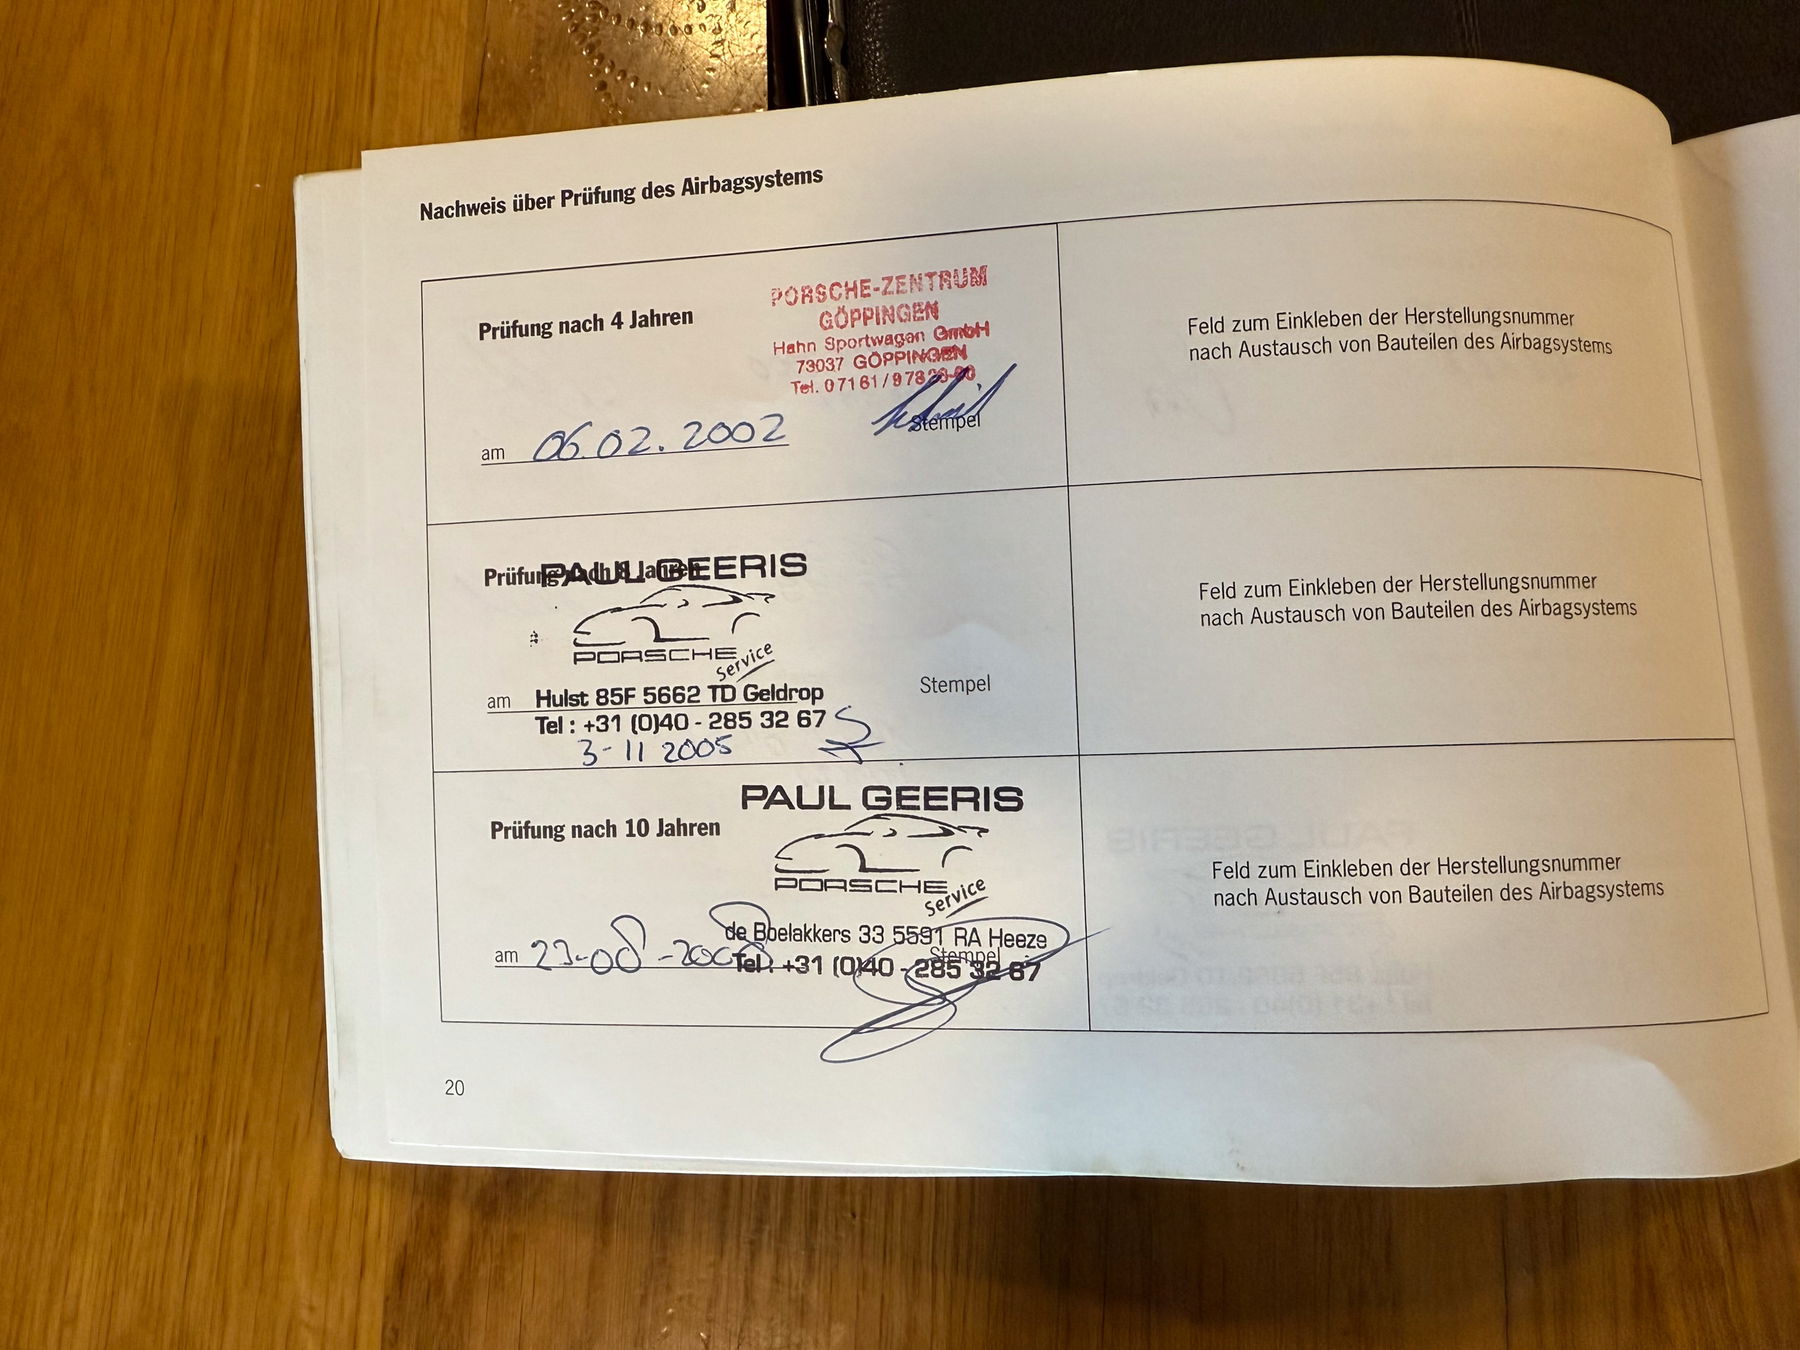 Nachweis über Prüfung des Airbagsystems
Prüfung nach 4 Jahren
PORSCHE-ZENTRUM
GÖPPINGEN
Hahn Sportwagen GmbH
73037 GÖPPINGEN
Tel. 07161/978
Stempel
am 06.02.2002
Feld zum Einkleben der Herstellungsnummer
nach Austausch von Bauteilen des Airbagsystems
Prüfung nach 8 Jahren
PAUL GEERIS
PORSCHE
Service
am
Hulst 85F 5662 TD Geldrop
Stempel
Tel : +31 (0)40 - 285 32 67
3-11 2005
Feld zum Einkleben der Herstellungsnummer
nach Austausch von Bauteilen des Airbagsystems
Prüfung nach 10 Jahren
PAUL GEERIS
PORSCHE
Service
de Boelakkers 33 5591 RA Heeze
Stempel
am
Tel : +31 (0)40 - 285 32 67
Feld zum Einkleben der Herstellungsnummer
nach Austausch von Bauteilen des Airbagsystems
20